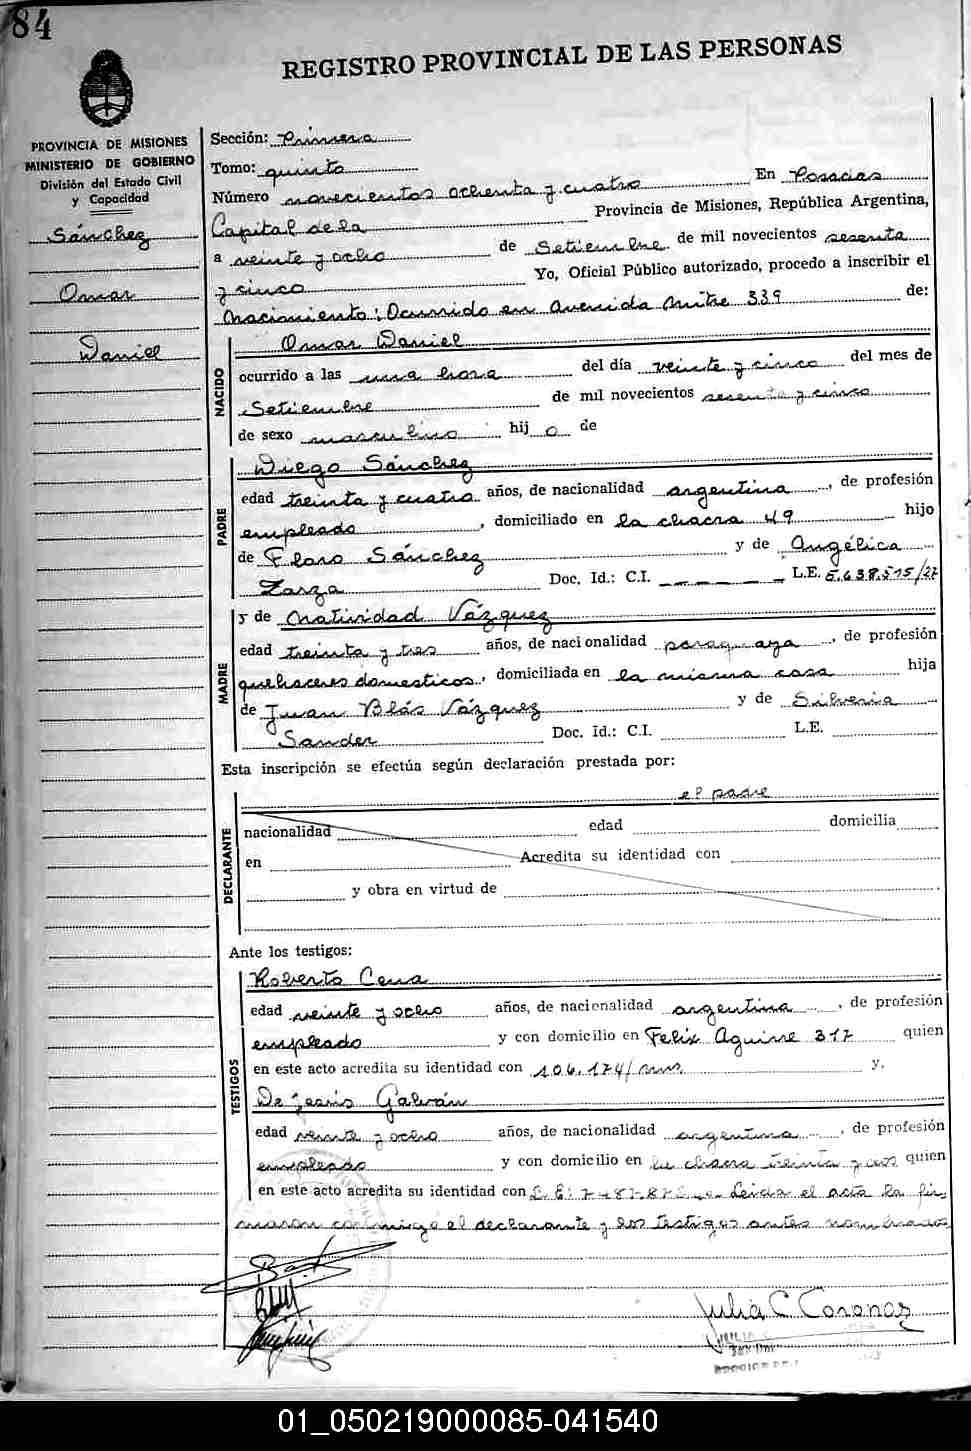 84
REGISTRO PROVINCIAL DE LAS PERSONAS
PROVINCIA DE MISIONES
MINISTERIO DE GOBIERNO
División del Estado Civil
y Capacidad
Sánchez
Omar
Daniel
Sección: Primera
Tomo: quinto
Número novecientos ochenta y cuatro En Posadas
Capital de la Provincia de Misiones, República Argentina,
a veinte y ocho de Setiembre de mil novecientos sesenta
y cinco Yo, Oficial Público autorizado, procedo a inscribir el
Nacimiento: Ocurrido en Avenida Mitre 339 de:
NACIDO
Omar Daniel
ocurrido a las una hora del día veinte y cinco del mes de
Setiembre de mil novecientos sesenta y cinco
de sexo masculino hij o de
PADRE
Diego Sánchez
edad treinta y cuatro años, de nacionalidad argentina, de profesión
empleado, domiciliado en la chacra 49 hijo
de Floro Sánchez y de Angélica
Zarza Doc. Id.: C.I. – – – – – – L.E. 5.638.515/27
MADRE
y de Natividad Vázquez
edad treinta y tres años, de nacionalidad paraguaya, de profesión
quehaceres domesticos, domiciliada en la misma casa hija
de Juan Blás Vázquez y de Silveria
Sander Doc. Id.: C.I. L.E.
Esta inscripción se efectúa según declaración prestada por:
el padre
DECLARANTE
nacionalidad edad domicilia
en Acredita su identidad con
y obra en virtud de
Ante los testigos:
TESTIGOS
Roberto Cena
edad veinte y ocho años, de nacionalidad argentina, de profesión
empleado y con domicilio en Felix Aguirre 317 quien
en este acto acredita su identidad con 106.174/ y.
De Jesús Galván
edad veinte y ocho años, de nacionalidad argentina, de profesión
empleado y con domicilio en la chacra treinta y quien
en este acto acredita su identidad con L.E: Leida el acta la fir-
maron conmigo el declarante y los testigos antes nombrados
Julia C. Coronas
01_050219000085-041540